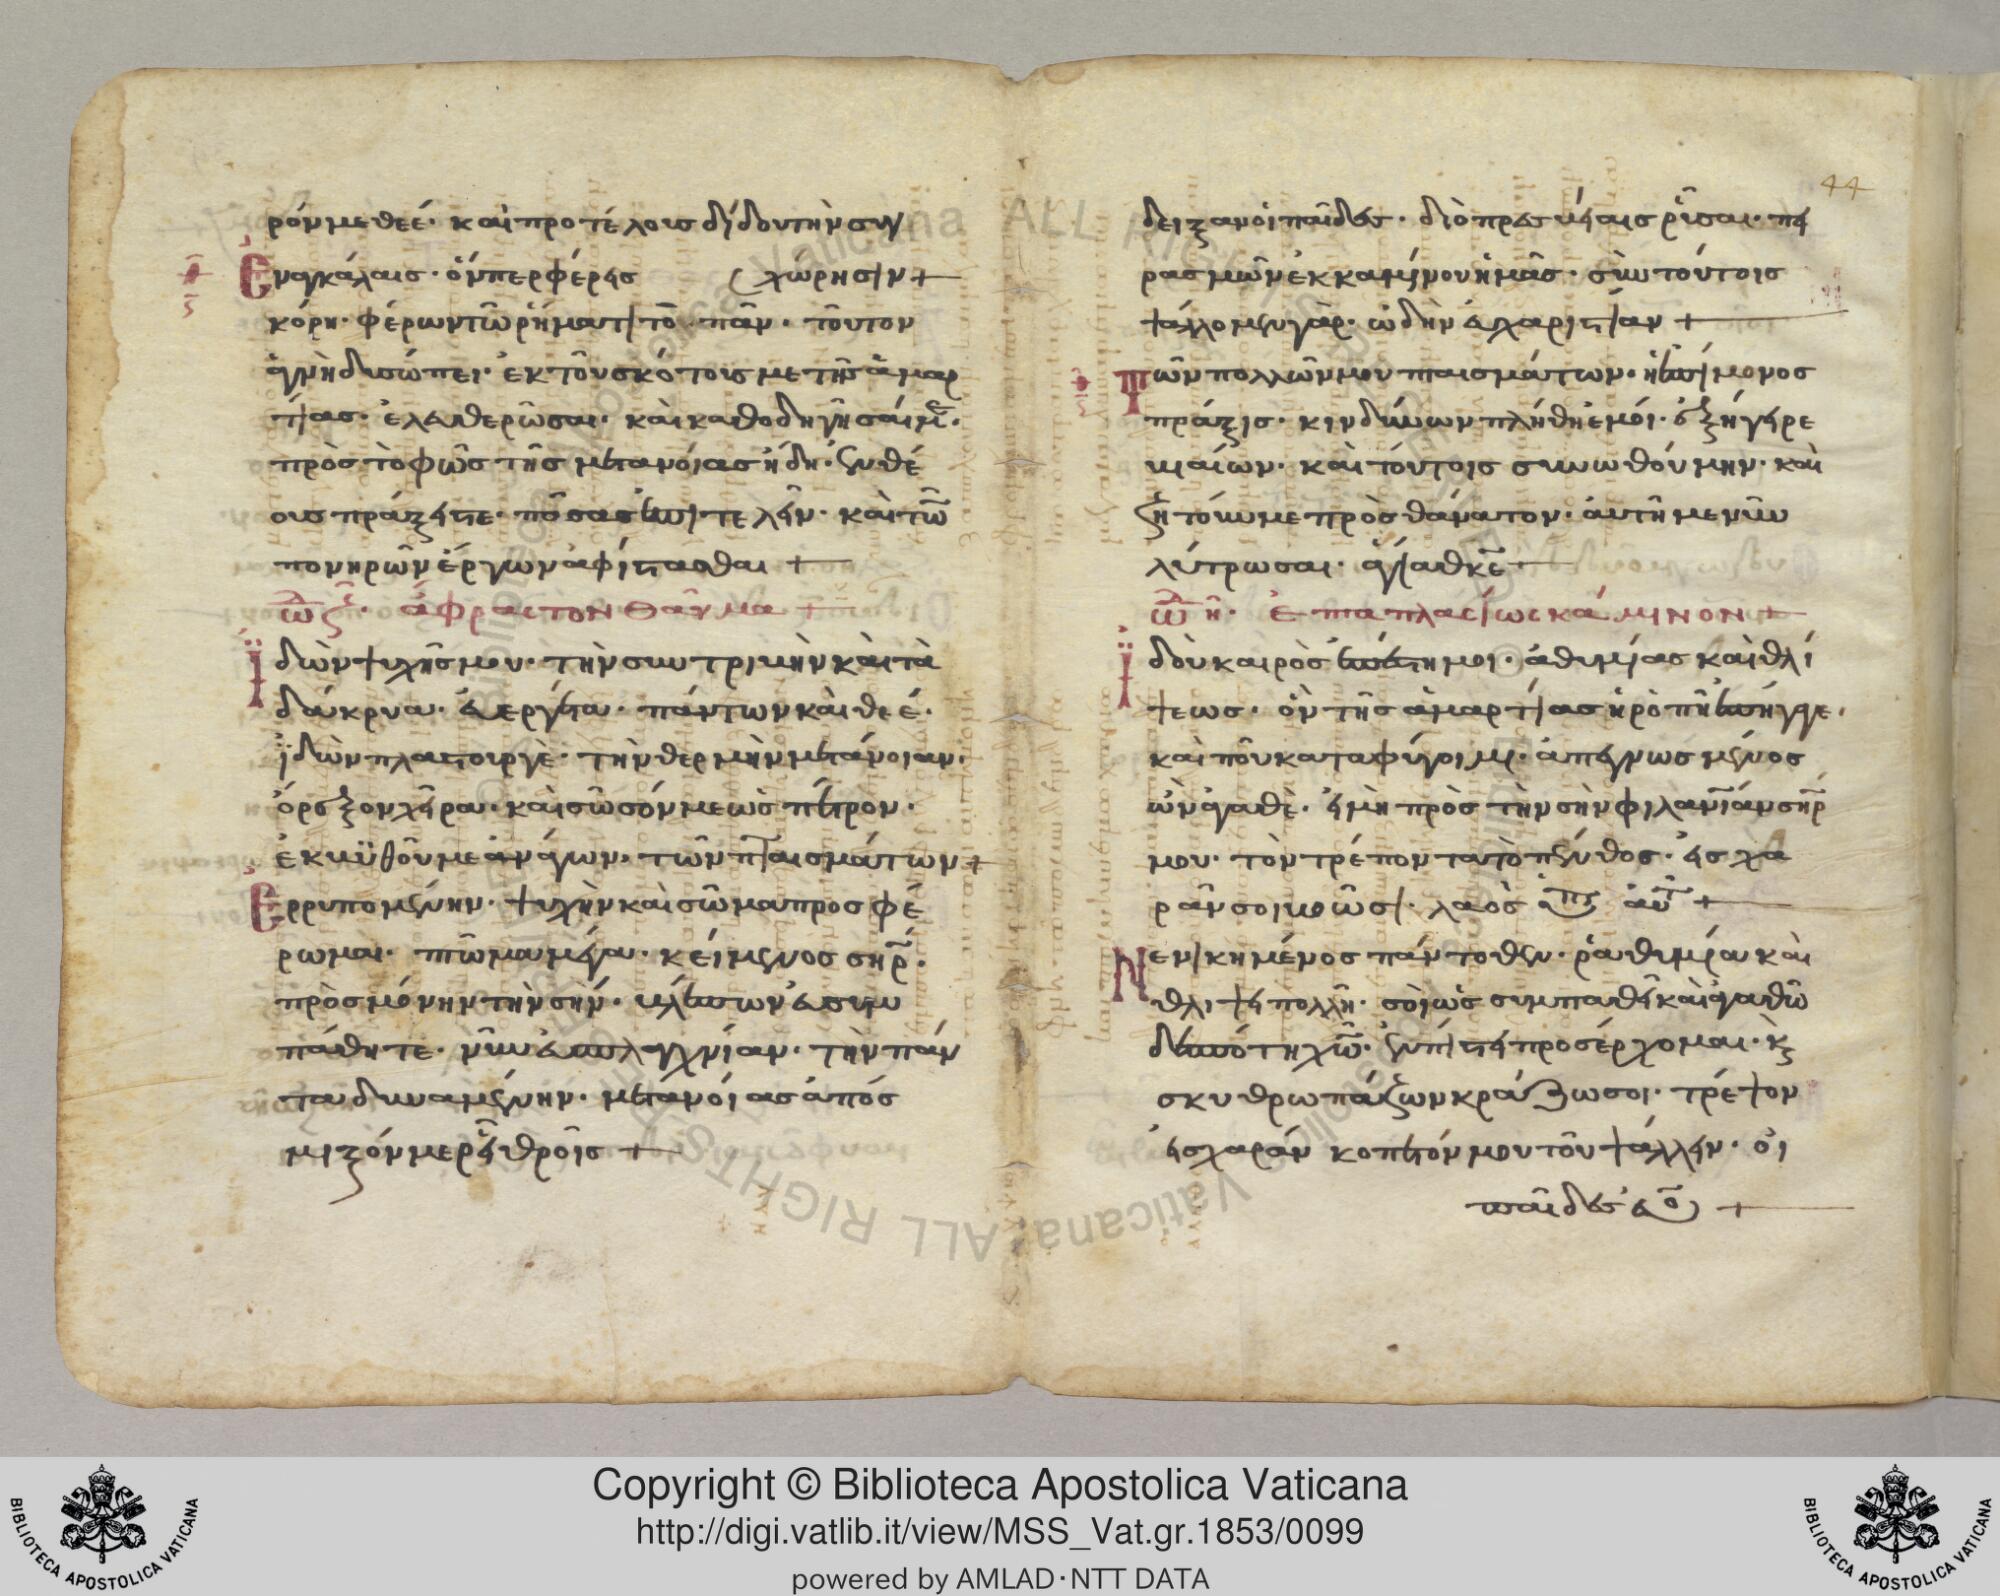 ρόν με θεέ· καὶ προ τέλους δίδου τὴν συγ
Ἐν ἀγκάλαις· ὅνπερ φέρεις χώρησιν +
κόρη· φέρων τῶ ῥήματι τὸ πᾶν· τοῦτον
ἁγνὴ δυσώπει· ἐκ τοῦ σκότους με τῆς ἁμαρ
τίας· ἐλευθερῶσαι· καὶ καθοδηγῆσαί με·
πρὸς τὸ φῶς τῆς μετανοίας ἤδη· ἐνθέ
ους πράξεις τε·
πονηρῶν ἔργων ἀφίστασθαι +
ὠδ ζ· ἄφραστον θαῦμα +
Ἰδὼν ψυχῆς μου· τὴν συντριμὴν καὶ τὰ
δάκρυα· εὐεργέτα· πάντων καὶ θεέ·
ἰδὼν πλαστουργὲ· τὴν θερμὴν μετάνοιαν·
ὄρεξον χεῖρα· καὶ σῶσόν με ὡς πέτρον·
ἐκ βυθοῦ με ἀνάγων· τῶν πταισμάτων +
Ἐρρυπομένην· ψυχὴν καὶ σῶμα προσφέ
ρωμαι· πτῶμα μέγα· κείμενος σηρ·
πρὸς μόνην τὴν σὴν· βλέπων εὐσυμ
πάθητε· νῦν εὐσπλαγχνίαν· τὴν πάν
τα δυναμένην· μετανοίας ἀπός
μιξόν με ῥείθροις +
44
δειξαν οἱ παῖδες· διὸ πρεσβείαις ῥῦσαι· πει
ρασμῶν ἐκ καμίνου ἡμᾶς· σὺν τούτοις
ψάλλομεν γὰρ· ὠδὴν εὐχαριστίαν +
Τῶν πολλῶν μου πταισμάτων· ἡ ἐπίμονος
πράξις· κινδύνων πλήθη ἐμοὶ· ἐξήγειρε
βιαίων· καὶ τούτοις συνωθούμην· καὶ
ζητοῦν με πρὸς θάνατον· αὐτή με νῦν
λύτρωσαι·
ὠδ η· Ἑπταπλασίως κάμινον +
Ἰδοὺ καιρὸς ἐπέστη μοι· ἀθυμίας καὶ θλί
ψεως· ὃν τῆς ἁμαρτίας ἡ ῥοπὴ ἐπήγαγε·
καὶ ποῦ καταφύγοιμι· ἀπεγνωσμένος
ὢν ἀγαθὲ· εἰ μὴ πρὸς τὴν σὴν φιλανίαν σηρ
μου· τὸν τρέποντα τὸ πένθος· εἰς χα
ρὰν σοι βοῶσι· λαὸς
Νενικημένος πάντοθεν· ῥαθυμία καὶ
θλίψει πολλῇ· σοὶ ὡς συμπαθεῖ καὶ ἀγαθῶ
δεσπότη χῶ· ἐν πίστει προσέρχομαι· κ
σκυθρωπάζων κράζω σοι· τρέψον
εἰς χαρὰν κοπετόν μου τοῦ ψάλλειν· οἱ
παῖδες εὐο +
Copyright © Biblioteca Apostolica Vaticana
http://digi.vatlib.it/view/MSS_Vat.gr.1853/0099
powered by AMLAD·NTT DATA
BIBLIOTECA APOSTOLICA VATICANA
BIBLIOTECA APOSTOLICA VATICANA